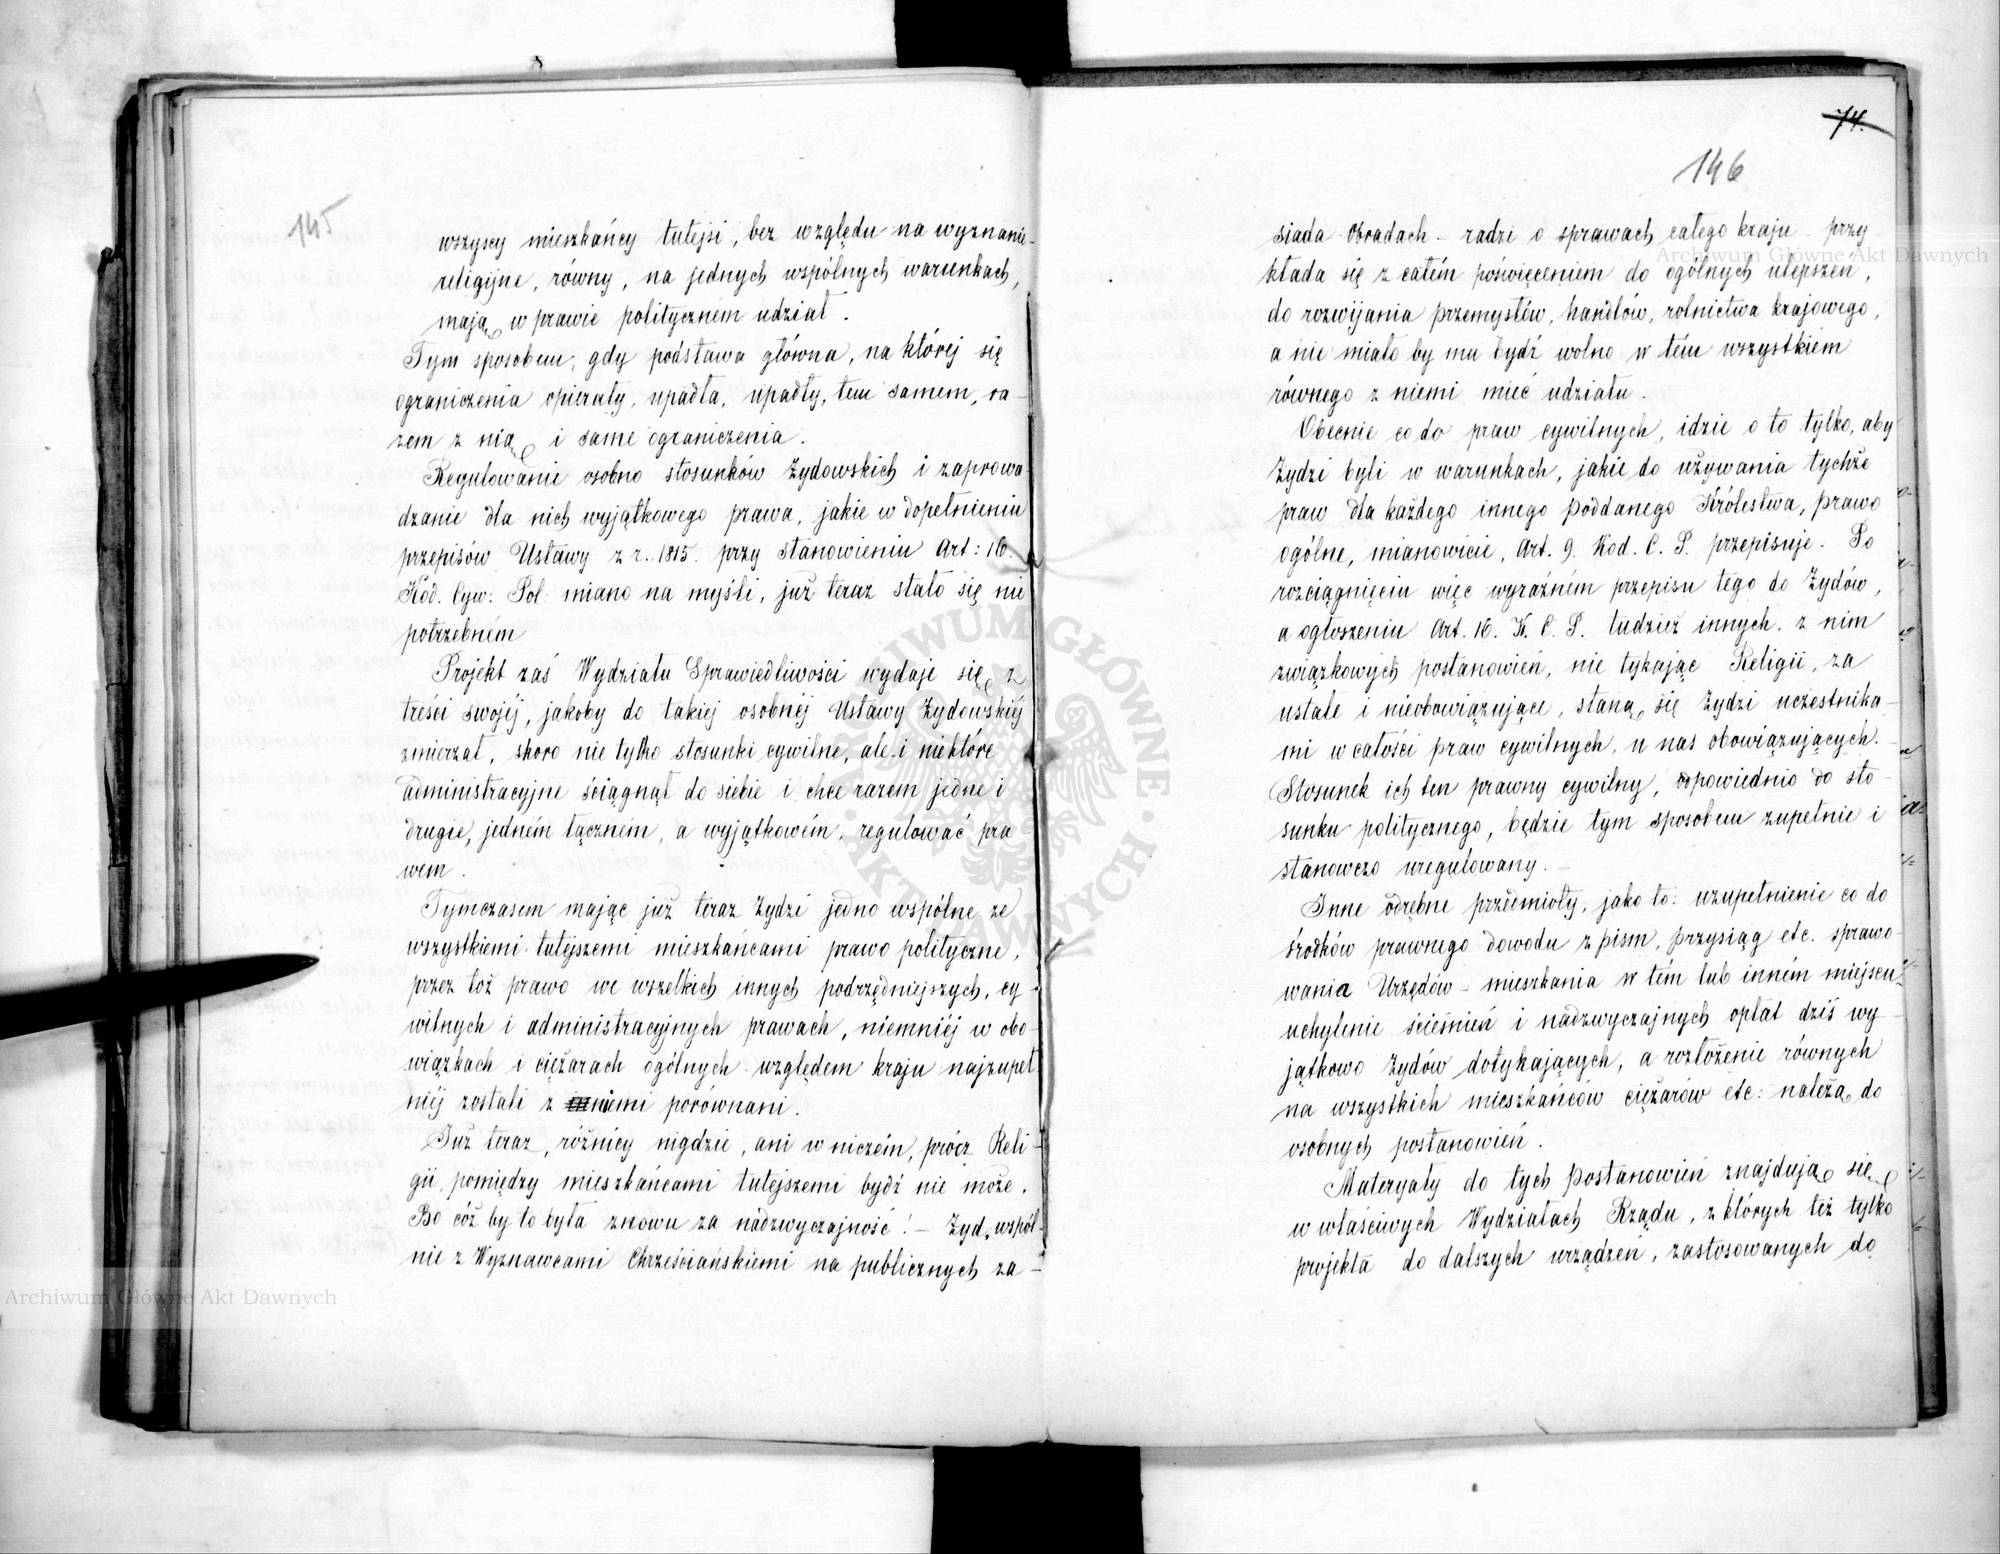 145
wszyscy mieszkańcy tutejsi, bez względu na wyznanie
religijne, równy, na jednych wspólnych warunkach,
mają w prawie politycznem udział.
Tym sposobem, gdy podstawa główna, na której się
ograniczenia opierały, upadła, upadły, tem samem, ra-
zem z nią i same ograniczenia.
Regulowanie osobno stosunków Żydowskich i zaprowa-
dzanie dla nich wyjątkowego prawa, jakie w dopełnieniu
przepisów Ustawy z r. 1815. przy stanowieniu Art: 16.
Kod. Cyw: Pol: miano na myśli, już teraz stało się nie
potrzebném
Projekt zaś Wydziału Sprawiedliwości wydaje się z
treści swojéj, jakoby do takiej osobnéj Ustawy Żydowskiéj
zmierzał, skoro nie tylko stosunki cywilne, ale i niektóre
administracyjne ściągnął do siebie i chce razem jedne i
drugie, jedném łączném, a wyjątkowém, regulować pra
wem.
Tymczasem mając już teraz Żydzi jedno wspólne ze
wszystkiemi tutejszemi mieszkańcami prawo polityczne,
przez toż prawo we wszelkich innych podrzędniejszych, cy
wilnych i administracyjnych prawach, niemniéj w obo-
wiązkach i ciężarach ogólnych względem kraju najzupeł
niéj zostali z niemi porównani.
Już teraz, różnicy nigdzie, ani w niczém, prócz Reli-
gii, pomiędzy mieszkańcami tutejszemi bydź nie może.
Bo cóż by to była znowu za nadzwyczajność! – Żyd, wspól-
nie z Wyznawcami Chrześciańskiemi na publicznych za-
74.
146
siada Obradach – radzi o sprawach całego kraju – przy
kłada się z całém poświęceniem do ogólnych ulepszeń,
do rozwijania przemysłów, handlów, rolnictwa krajowego,
a nie miało by mu bydź wolno w tém wszystkiem
równego z niemi mieć udziału.
Obecnie co do praw cywilnych, idzie o to tylko, aby
Żydzi byli w warunkach, jakie do używania tychże
praw dla każdego innego poddanego Królestwa, prawo
ogólne, mianowicie, Art. 9. Kod. C. P. przepisuje. Po
rozciągnięciu więc wyraźném przepisu tego do Żydów,
a ogłoszeniu Art. 16. K. C. P. tudzież innych z nim
związkowych postanowień, nie tykając Religii, za
ustałe i nieobowiązujące, staną się Żydzi uczestnika-
mi w całości praw cywilnych, u nas obowiązujących. –
Stosunek ich ten prawny cywilny, odpowiednio do sto-
sunku politycznego, będzie tym sposobem zupełnie i
stanowczo uregulowany. –
Inne odrębne przedmioty, jako to: uzupełnienie co do
środków prawnego dowodu z pism, przysiąg etc. sprawo-
wania Urzędów – mieszkania w tém lub inném miejscu
uchylenie ścieśnień i nadzwyczajnych opłat dziś wy-
jątkowo Żydów dotykających, a rozłożenie równych
na wszystkich mieszkańców ciężarów etc: należą do
osobnych postanowień.
Materyały do tych postanowień znajdują się
w właściwych Wydziałach Rządu, z których też tylko
projekta do dalszych urządzeń, zastosowanych do
Archiwum Główne Akt Dawnych
Archiwum Główne Akt Dawnych
ARCHIWUM GŁÓWNE AKT DAWNYCH